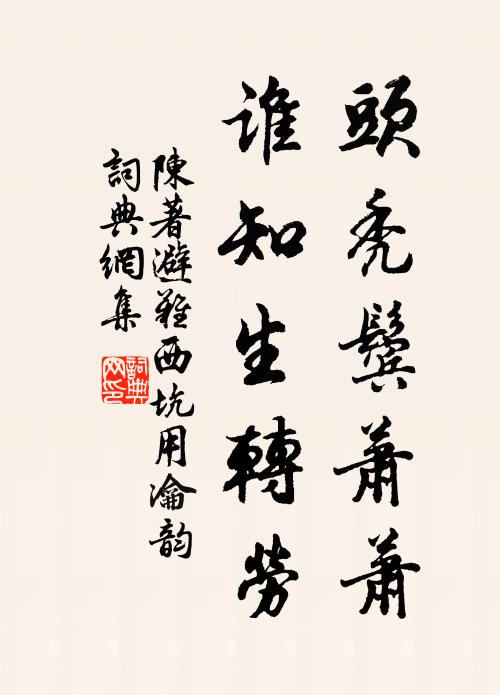 頭禿鬢蕭蕭
誰知生轉勞
陳著避難西坑用瀹韵
詞典網集
詞典
网印